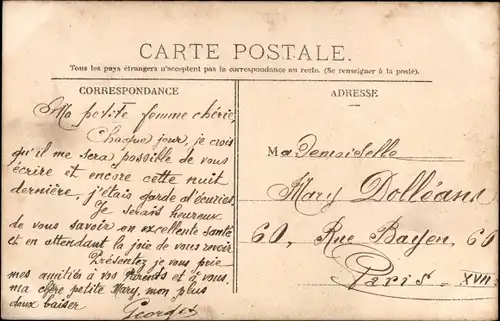 CARTE POSTALE.
Tous les pays étrangers n'acceptent pas la correspondance au recto. (Se renseigner à la poste).
CORRESPONDANCE
Ma petite femme chérie,
Chaque jour, je crois
qu'il me sera possible de vous
écrire et encore cette nuit
dernière, j'étais garde d'écuries.
Je serais heureux
de vous savoir en excellente santé
et en attendant la joie de vous revoir
Présentez je vous prie
mes amitiés à vos Parents et à vous,
ma chère petite Mary, mon plus
doux baiser
Georges
ADRESSE
Mademoiselle
Mary Dolléans
60, Rue Bayen, 60
Paris - XVII